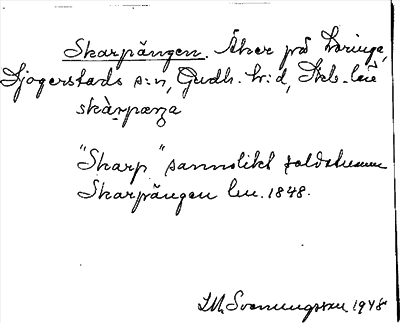 Skarpängen. Åker på Haringe,
Ljogerstads s:n, Gudh. h:d, Skb. län
skàrpæŋa
"Skarp" sannolikt soldatnamn
Skarpängen lm. 1848.
I.M. Svenningsson 1948